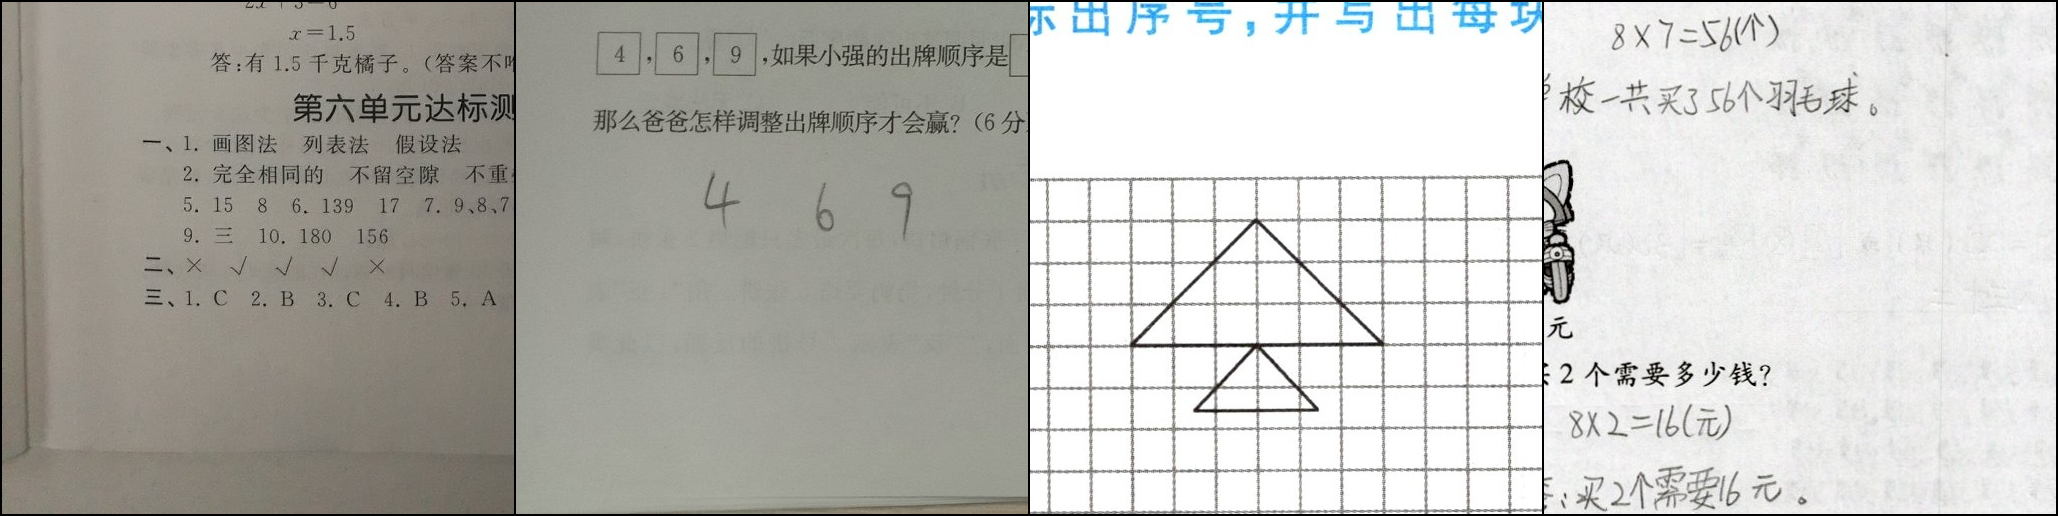 x=1.5
答:有 1.5 千克橘子。(答案不
第六单元达标测
一、1. 画图法 列表法 假设法
2. 完全相同的 不留空隙 不重
5. 15 8 6. 139 17 7. 9、8、7
9. 三 10. 180 156
二、× √ √ √ ×
三、1. C 2. B 3. C 4. B 5. A
4 , 6 , 9 ,如果小强的出牌顺序是
那么爸爸怎样调整出牌顺序才会赢?(6 分
4 6 9
标出序号,并写出每块
8×7=56(个)
校一共买了56个羽毛球。
元
2 个需要多少钱?
8×2=16(元)
:买2个需要16元。